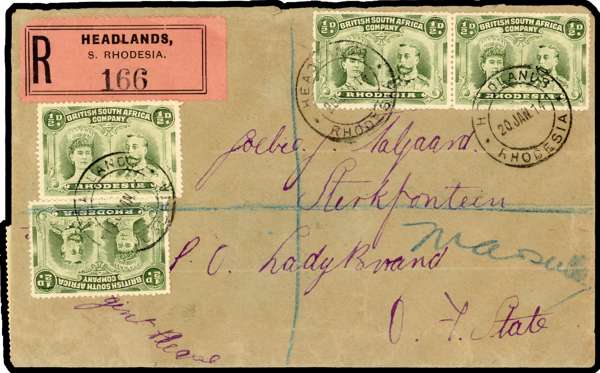 R
HEADLANDS,
S. RHODESIA.
166
½D. BRITISH SOUTH AFRICA COMPANY ½D.
RHODESIA
½D. BRITISH SOUTH AFRICA COMPANY ½D.
RHODESIA
HEADLANDS
RHODESIA
HEADLANDS
20 JAN 14
RHODESIA
½D. BRITISH SOUTH AFRICA COMPANY ½D.
RHODESIA
½D. BRITISH SOUTH AFRICA COMPANY ½D.
RHODESIA
Sterkfontein
P O Ladybrand
O. F. State